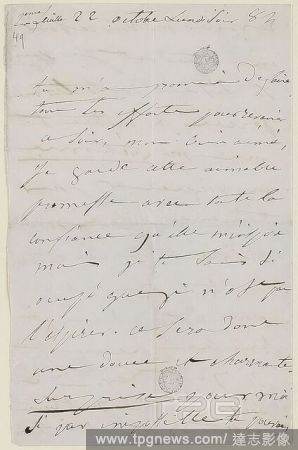 22 octobre Lundi soir 8 h
49
tu m'as promis de faire
tous les efforts pour revenir
ce soir, mon bien aimé,
Je garde cette aimable
promesse avec toute la
confiance qu'elle m'inspire
mais je te sais si
occupé que je n'ose pas
l'espérer. ce sera donc
une douce et charmante
surprise pour moi
si par
www.tpgnews.com/達志影像